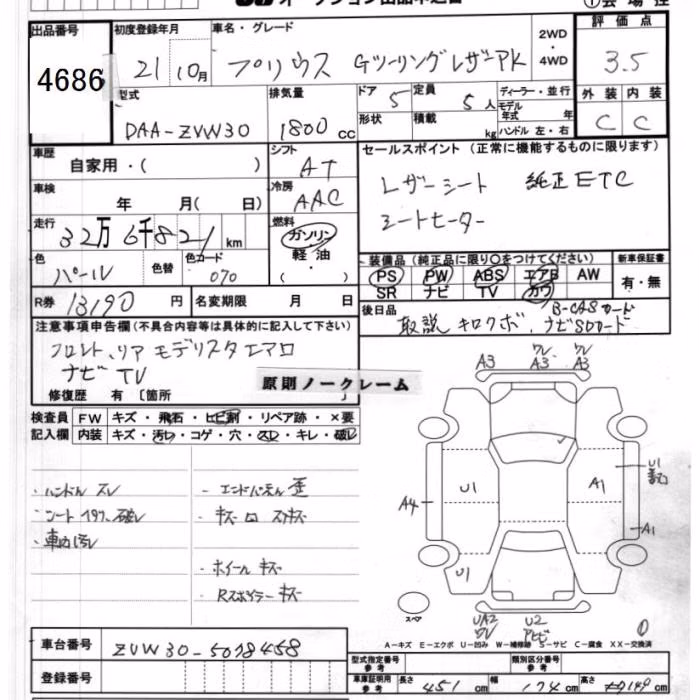 出品番号
4686
初度登録年月
21 10月
車名・グレード
プリウス Gツーリングレザーpk
2WD
・
4WD
評価点
3.5
外装 内装
C C
型式
DAA-ZVW30
排気量
1800 cc
ドア
5
定員
5人
ディーラー・並行
モデル年式 年
形状
積載 kg
ハンドル 左・右
車歴
自家用・( )
シフト
AT
セールスポイント(正常に機能するものに限ります)
レザーシート 純正ETC
シートヒーター
車検
年 月( 日)
冷房
AAC
走行
32万6千821km
燃料
ガソリン
軽油
・( )
色
パール
色替
色コード
070
装備品(純正品に限り○をつけてください)
PS PW ABS エアB AW
SR ナビ TV カワ
新車保証書
有・無
R券 13190 円
名変期限 月 日
後日品
取説 キロクボ、ナビSDカード
B-CASカード
注意事項申告欄(不具合内容等は具体的に記入して下さい)
フロント、リア モデリスタエアロ
ナビ TV
修復歴 有 〔箇所
原則ノークレーム
検査員
記入欄
FW キズ・飛石・ヒビ割・リペア跡・×要
内装 キズ・汚レ・コゲ・穴・スレ・キレ・破レ
・ハンドル スレ
・シート 破レ
・車内汚レ
・エンドパネル 歪
・ホイール キズ
・Rスポイラー キズ
A3
ワレ
A3
ワレ
A3
U1
A1
U1
A4
A1
U1
スペア
UA2
ワレ
U2
A-キズ E-エクボ U-凹み W-補修跡 S-サビ C-腐食 XX-交換済
車台番号
ZVW30-5078458
登録番号
型式指定番号
参考
類別区分番号
参考
車庫証明用
参考
長さ 451 cm
幅 174 cm
高さ 149 cm